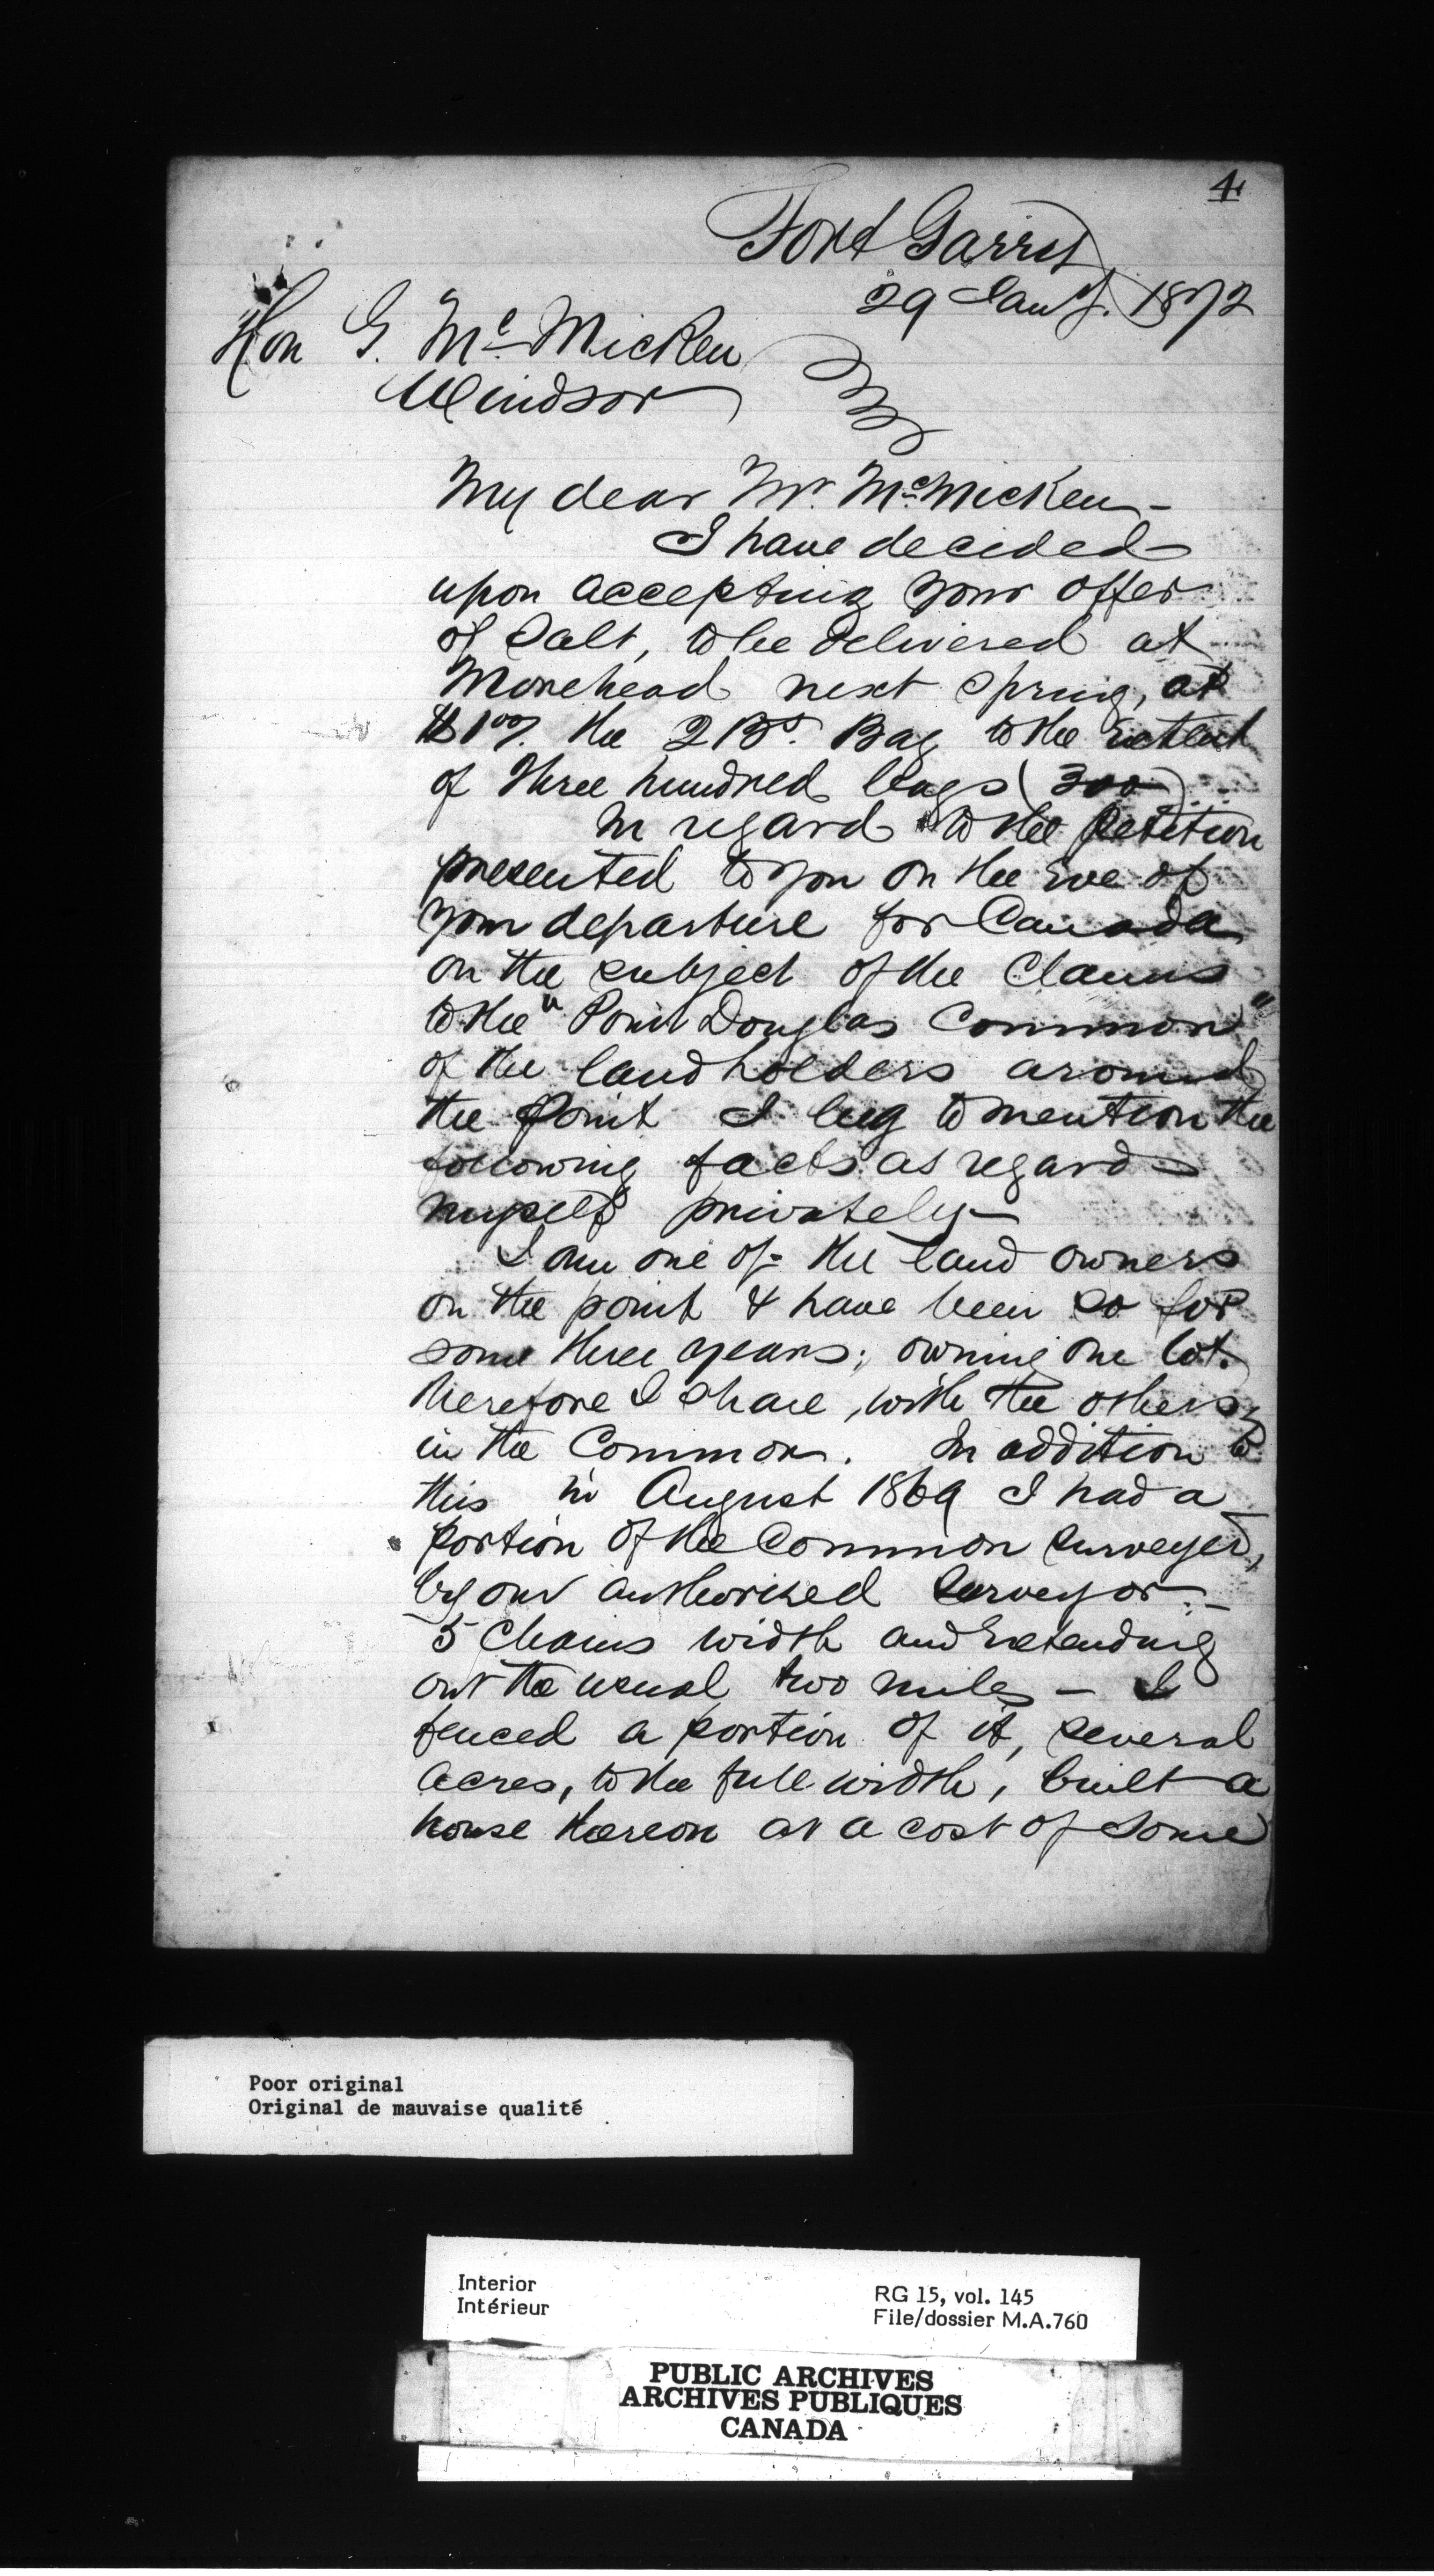 4
Fort Garry
29 Jany. 1872
Hon G. Mc Micken
Windsor
My dear Mr. McMicken -
I have decided
upon accepting your offer
of Salt, to be delivered at
Morehead next Spring, at
$1 00/. the 2 Bs. Bag to the Extent
of three hundred bags (300)
In regard to the Petition
presented to you on the Eve of
your departure for Canada
on the subject of the Claims
to the "Point Douglas Common"
of the landholders around
the Point I beg to mention the
following facts as regards
myself privately -
I am one of the land owners
on the point & have been so for
some three years; owning one lot.
therefore I share, with the others,
in the Common. In addition to
this in August 1869 I had a
portion of the Common surveyed,
by our authorised Surveyor -
5 Chains width and Extending
out the usual two miles - I
fenced a portion of it, several
acres, to the full width, built a
house thereon at a cost of Some
Poor original
Original de mauvaise qualité
Interior
Intérieur
RG 15, vol. 145
File/dossier M.A.760
PUBLIC ARCHIVES
ARCHIVES PUBLIQUES
CANADA